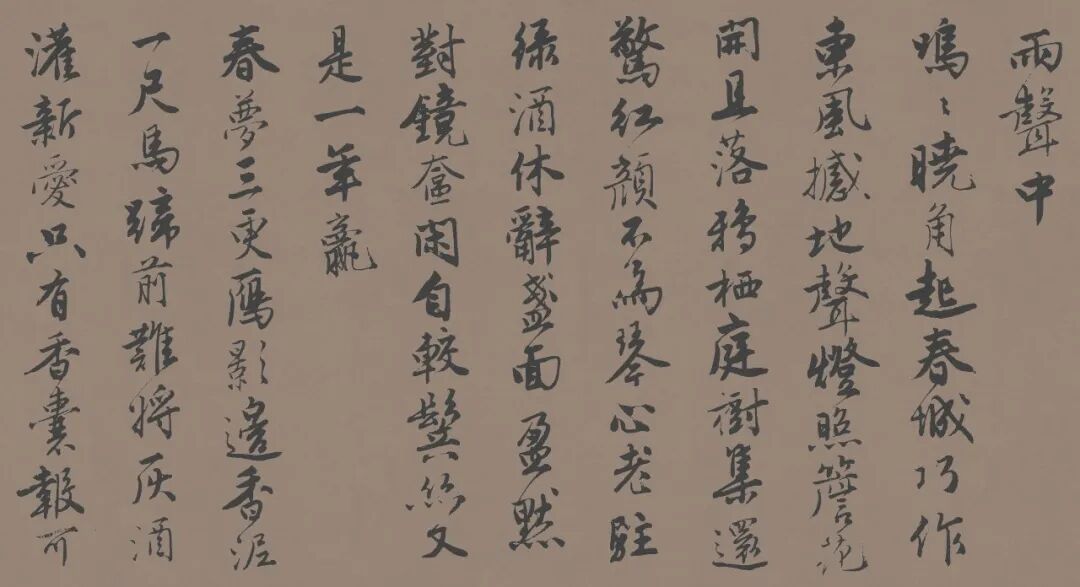 雨聲中
嗚〻曉角起春城巧作
東風撼地聲燈照簷花
開且落鴉栖庭樹集還
驚紅顏不為琴心老駐
緑酒休辭盞面盈默
對鏡奩閑自較鬢絲又
是一年贏
春夢三更鴈影邊香泥
一尺馬蹄前難將灰酒
灌新愛只有香囊報可